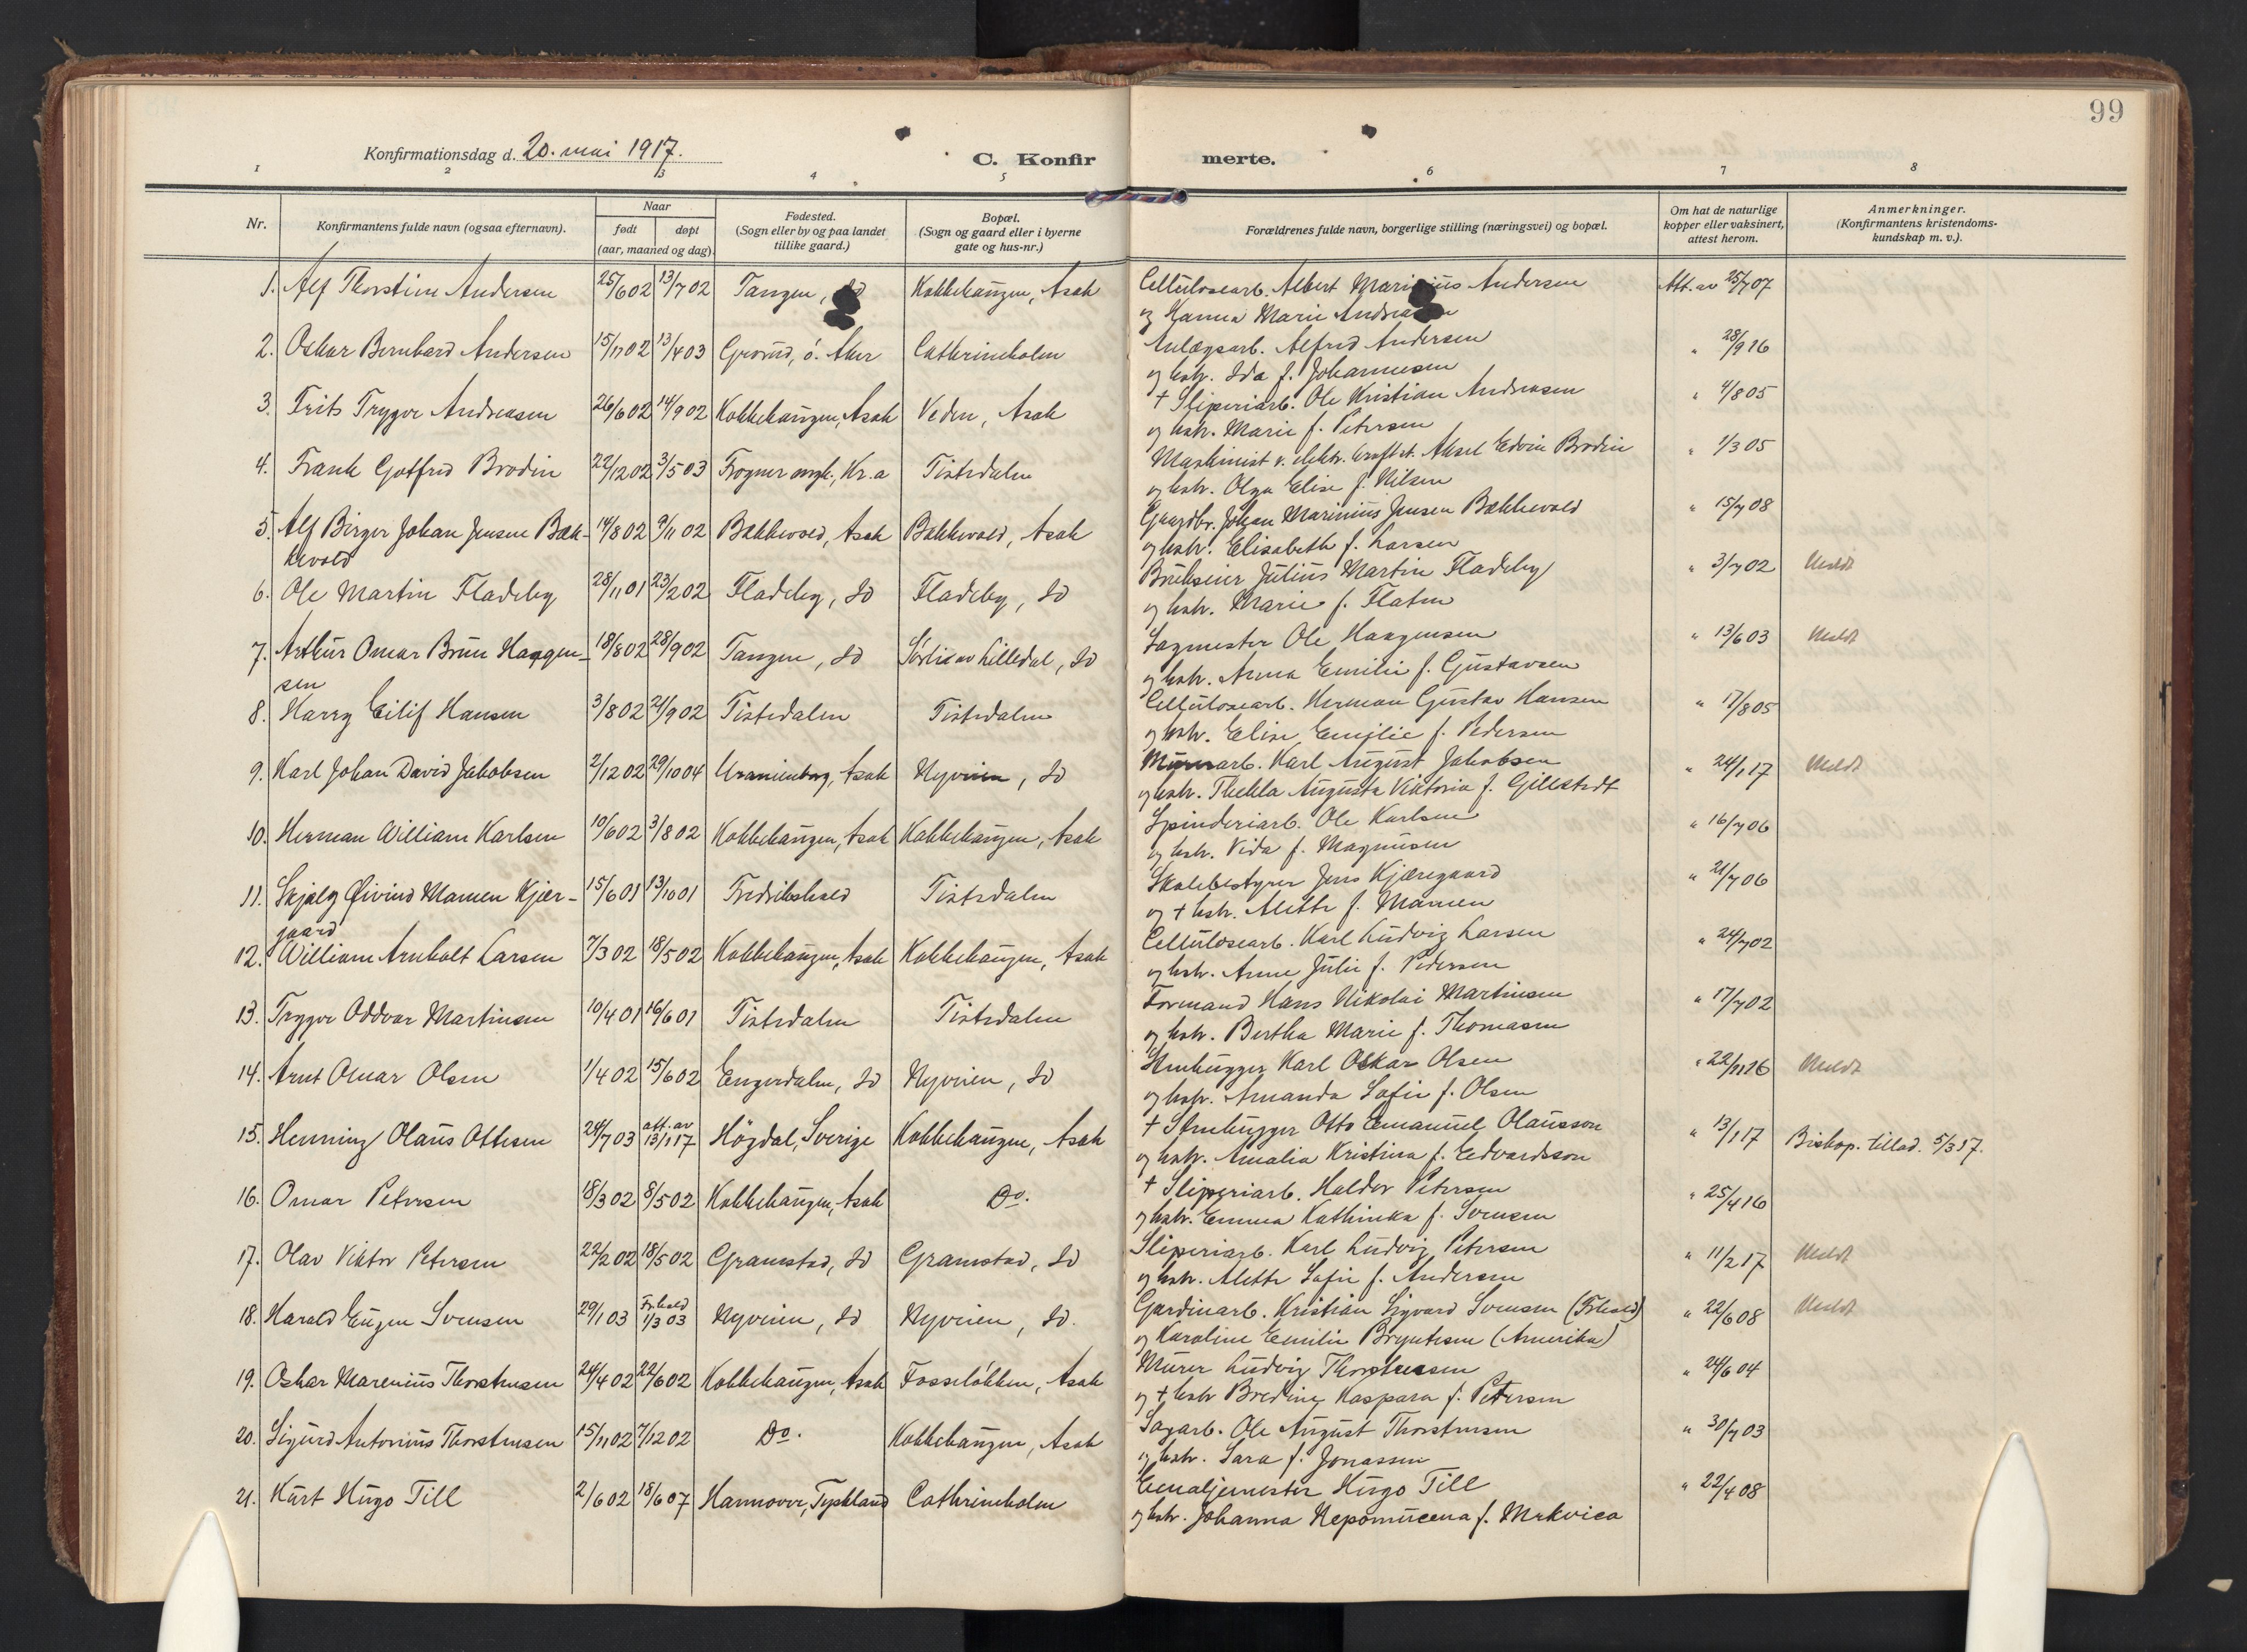 99
Konfirmationsdag d. 20. mai 1917.
C. Konfir
merte.
1 2 3 4 5 6 7 8
Nr. Konfirmantens fulde navn (ogsaa efternavn). Naar født døpt (aar, maaned og dag). Fødested. (Sogn eller by og paa landet tillike gaard.) Bopæl. (Sogn og gaard eller i byerne gate og hus-nr.) Forældrenes fulde navn, borgerlige stilling (næringsvei) og bopæl. Om hat de naturlige kopper eller vaksinert, attest herom. Anmerkninger. (Konfirmantens kristendoms-kundskap m. v.).
1. Alf Thorstein Andersen 25/6 02 13/7 02 Tangen, Kokkehaugen, Asak Cellulosearb. Albert Marinius Andersen Att. av 25/7 07
og Hanna Marie
2. Oskar Bernhard Andersen 15/11 02 13/4 03 Grorud, ö. Aker Cathrineholm Anlægsarb. Alfred Andersen " 28/9 16
og hstr. Ida f. Johannesen
3. Frits Trygve Andreasen 26/6 02 14/9 02 Kokkehaugen, Asak Veden, Asak + Sliperiarb. Ole Kristian Andreasen " 4/8 05
og hstr. Marie f. Petersen
4. Frank Gotfred Brodin 22/12 02 3/5 03 Frogner mgh., Kr.a Tistedalen Maskinist v. elektr. kraftst. Aksel Edvin Brodin " 1/3 05
og hstr. Olga Elise f. Nilsen
5. Alf Birger Johan Jensen Bæk- 14/8 02 9/11 02 Bækkevold, Asak Bækkevold, Asak Gaardbr. Johan Marinius Jensen Bækkevold " 15/7 08
kevold og hstr. Elisabeth f. Larsen
6. Ole Martin Fladeby 28/11 01 23/2 02 Fladeby, Id Fladeby, Id Brukseier Julius Martin Fladeby " 3/7 02 Meldt
og hstr. Marie f. Flaten
7. Arthur Omar Brun Haagen- 18/8 02 28/9 02 Tangen, Id Sørlie av Lilledal, Id Sagmester Ole Haagensen " 13/6 03 Meldt
sen og hstr. Anna Emilie f. Gustavsen
8. Harry Eilif Hansen 3/8 02 21/9 02 Tistedalen Tistedalen Cellulosearb. Herman Gustav Hansen " 17/8 05
og hstr. Elise Emilie f. Pedersen
9. Karl Johan David Jakobsen 2/12 02 29/10 04 Uranienborg, Asak Nyveien, Id Murarb. Karl August Jakobsen " 24/1 17 Meldt
og hstr. Thekla Augusta Viktoria f. Gillstedt
10. Herman William Karlsen 10/6 02 3/8 02 Kokkehaugen, Asak Kokkehaugen, Asak Spinderiarb. Ole Karlsen " 16/7 06
og hstr. Vida f. Magnusen
11. Skjalg Øivind Mamen Kjær- 15/6 01 13/10 01 Fredrikshald Tistedalen Skolebestyrer Jens Kjæregaard " 21/7 06
gaard og + hstr. Alette f. Mamen
12. William Arnholt Larsen 7/3 02 18/5 02 Kokkehaugen, Asak Kokkehaugen, Asak Cellulosearb. Karl Ludvig Larsen " 24/7 02
og hstr. Anne Julie f. Pedersen
13. Trygve Oddvar Martinsen 10/4 01 16/6 01 Tistedalen Tistedalen Formand Hans Nikolai Martinsen " 17/7 02
og hstr. Bertha Marie f. Thomasen
14. Arnt Omar Olsen 1/4 02 15/6 02 Engerdalen, Id Nyveien, Id Stenhugger Karl Oskar Olsen " 22/11 16 Meldt
og hstr. Amanda Sofie f. Olsen
15. Henning Olaus Ottesen 24/7 03 att. av 13/1 17 Högdal, Sverige Kokkehaugen, Asak + Stenhugger Otto Emanuel Olausson " 13/1 17 Biskop. tillad. 5/3 17.
og hstr. Amalia Kristina f. Edvardsson
16. Omar Petersen 18/3 02 8/5 02 Kokkehaugen, Asak Do. + Sliperiarb. Haldor Petersen " 25/4 16
og hstr. Emma Kathinka f. Svensen
17. Olav Viktor Petersen 22/2 02 18/5 02 Gramstad, Id Gramstad, Id Sliperiarb. Karl Ludvig Petersen " 11/2 17 Meldt
og hstr. Alette Sofie f. Andersen
18. Harald Eugen Svensen 29/1 03 Fr.hald 1/3 03 Nyveien, Id Nyveien, Id. Gardinarb. Kristian Sigvard Svensen (Frhald) " 22/6 08 Meldt
og Karoline Emilie Bryntesen (Amerika)
19. Oskar Marenius Thorstensen 24/4 02 22/6 02 Kokkehaugen, Asak Fosseløkken, Asak Murer Ludvig Thorstensen " 24/6 04
og + hstr Bredine Kaspara f. Petersen
20. Sigurd Antonius Thorstensen 15/11 02 7/12 02 Do. Kokkehaugen, Asak Sagarb. Ole August Thorstensen " 30/7 03
og hstr. Sara f. Jonassen
21. Kurt Hugo Till 2/6 02 18/6 07 Hannover, Tyskland Cathrineholm Emaljemester Hugo Till " 22/4 08
og hstr. Johanna Nepomucena f. Mrkvica